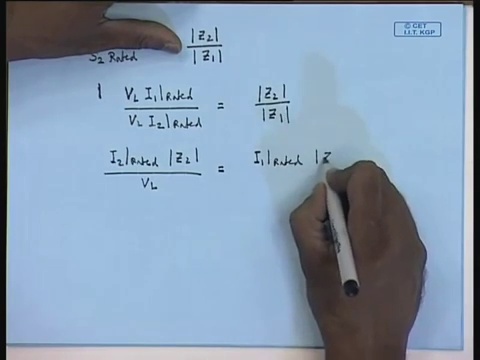 © CET
I.I.T. KGP
S₂ Rated |Z₂| / |Z₁|
V_L I₁|Rated / V_L I₂|Rated = |Z₂| / |Z₁|
I₂|Rated |Z₂| / V_L = I₁|Rated |Z